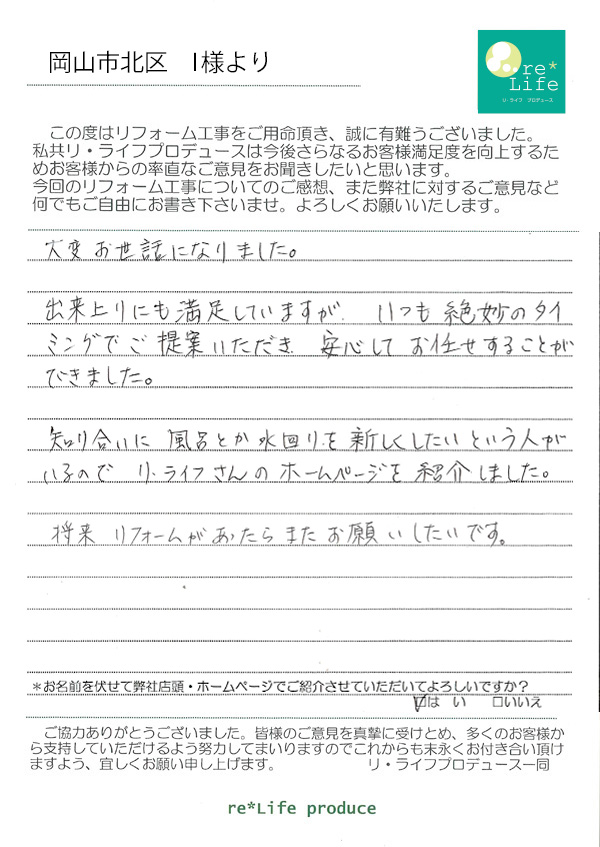 岡山市北区　I様より
re*
Life
リ・ライフ　プロデュース
この度はリフォーム工事をご用命頂き、誠に有難うございました。
私共リ・ライフプロデュースは今後さらなるお客様満足度を向上するた
めお客様からの率直なご意見をお聞きしたいと思います。
今回のリフォーム工事についてのご感想、また弊社に対するご意見など
何でもご自由にお書き下さいませ。よろしくお願いいたします。
大変お世話になりました。
出来上りにも満足していますが、いつも絶妙のタイ
ミングでご提案いただき、安心してお任せすることが
できました。
知り合いに風呂とか水回りを新しくしたいという人が
いるのでリ・ライフさんのホームページを紹介しました。
将来リフォームがあったらまたお願いしたいです。
＊お名前を伏せて弊社店頭・ホームページでご紹介させていただいてよろしいですか？
☑はい　□いいえ
ご協力ありがとうございました。皆様のご意見を真摯に受けとめ、多くのお客様か
ら支持していただけるよう努力してまいりますのでこれからも末永くお付き合い頂け
ますよう、宜しくお願い申し上げます。　リ・ライフプロデュース一同
re*Life produce